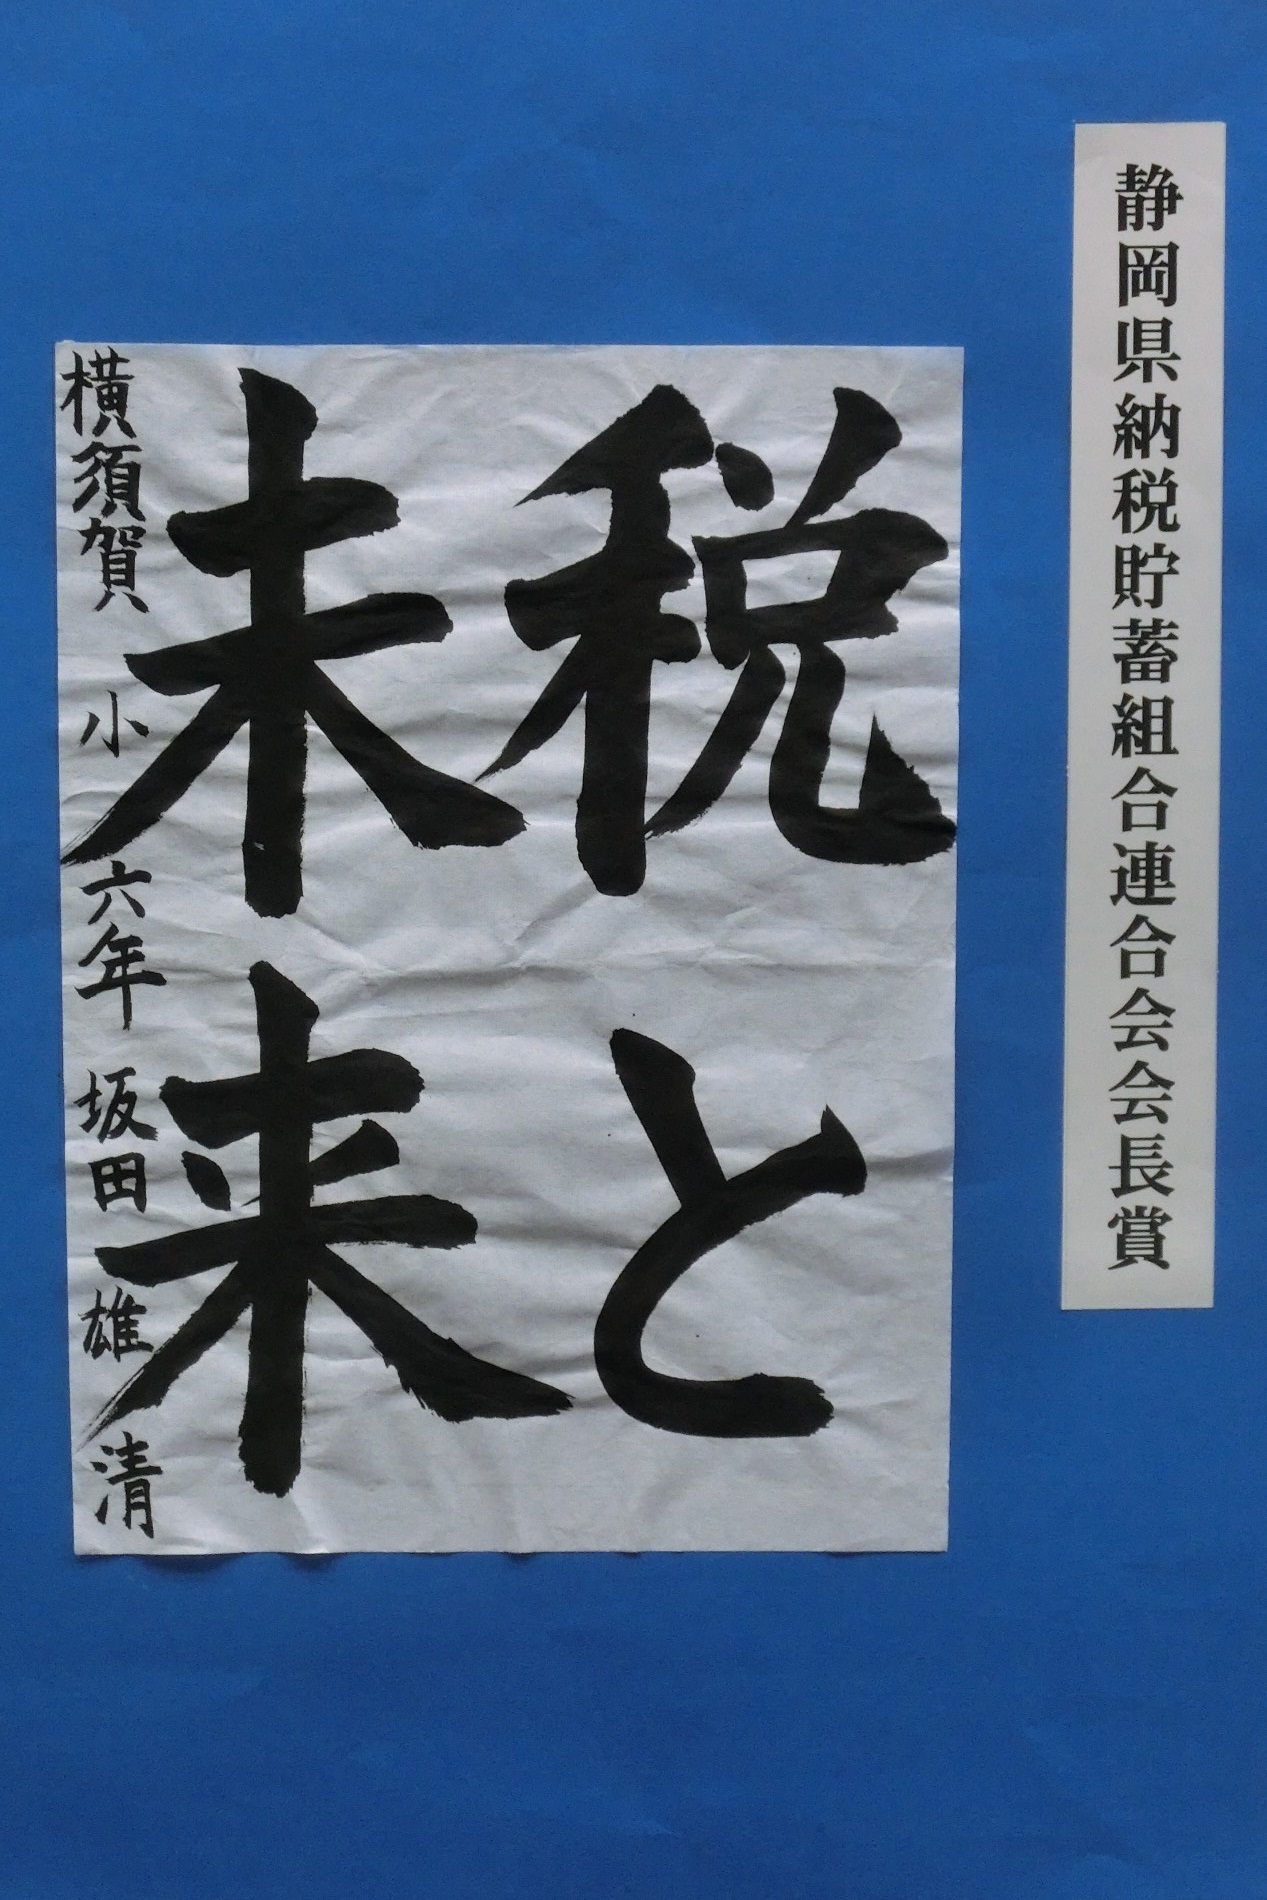 静岡県納税貯蓄組合連合会会長賞
税と
未来
横須賀小六年坂田雄清